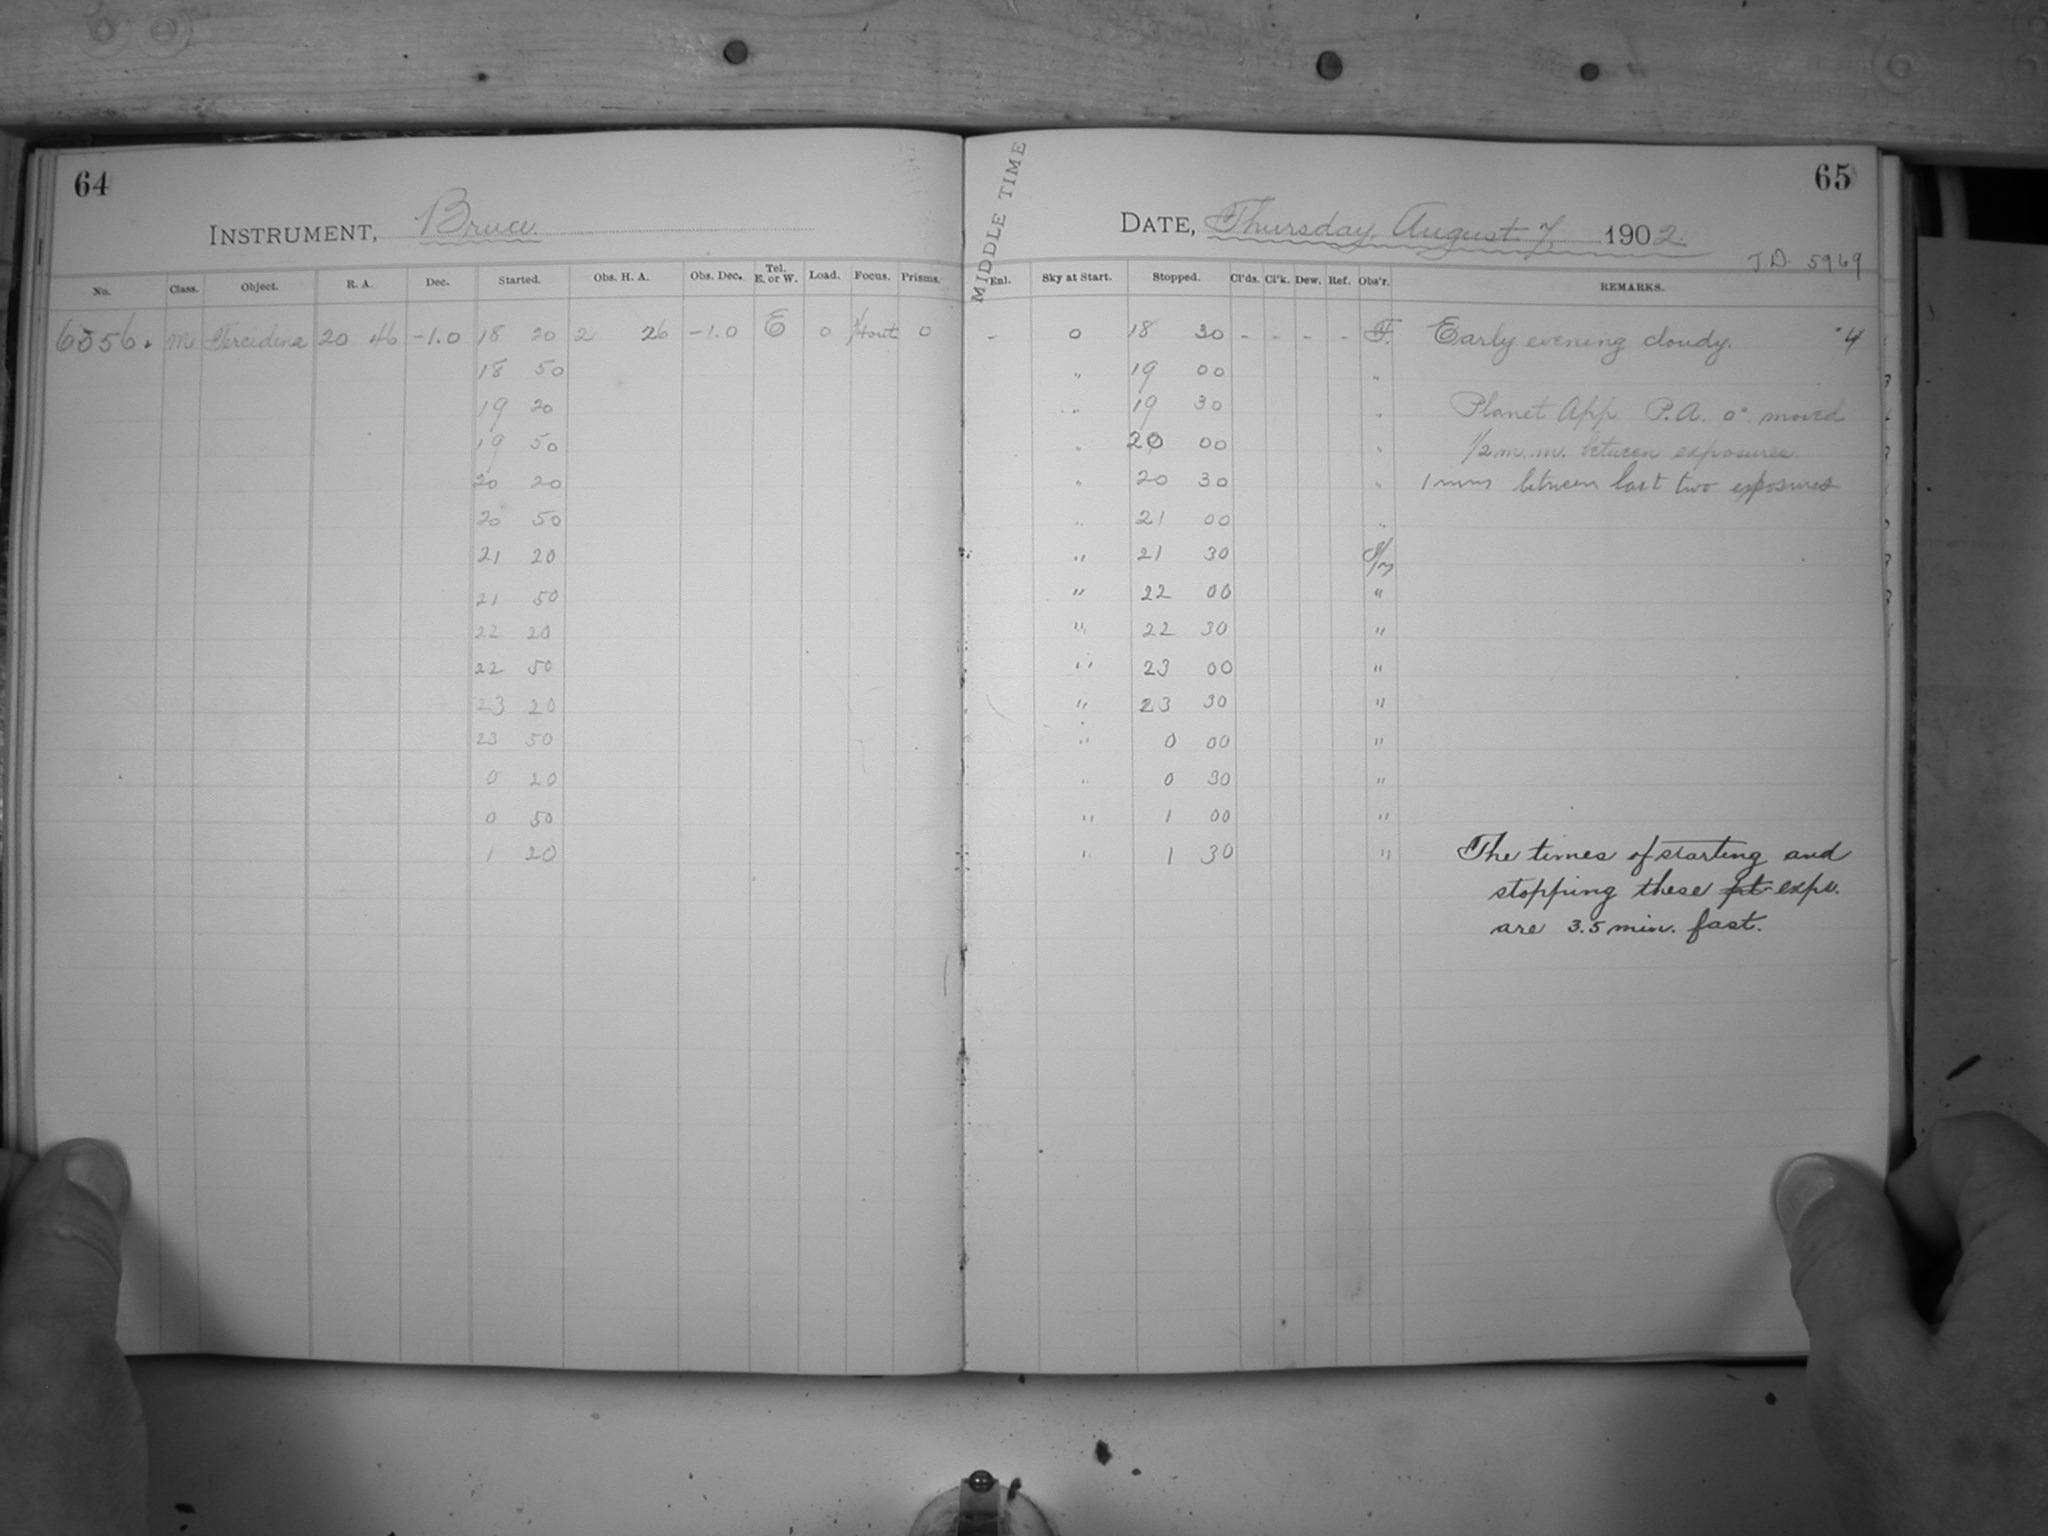 64
INSTRUMENT, Bruce
No. Class. Object. R. A. Dec. Started. Obs. H. A. Obs. Dec. Tel. E. or W. Load. Focus. Prisms.
6556. M Tercidina 20 46 -1.0 18 20 2 26 -1.0 E 0 1/4 out 0
18 50
19 20
19 50
20 20
20 50
21 20
21 50
22 20
22 50
23 20
23 50
0 20
0 50
1 20
MIDDLE TIME
65
DATE, Thursday, August 7, 1902.
J.D. 5969
Enl. Sky at Start. Stopped. Cl'ds. Cl'k. Dew. Ref. Obs'r. REMARKS.
- 0 18 30 - - - - F. Early evening cloudy. 4
" 19 00 "
" 19 30 " Planet App P.A. 0° moved
" 20 00 " 1/2 m.m. between exposures.
" 20 30 " 1 mm between last two exposures
" 21 00 "
" 21 30
" 22 00 "
" 22 30 "
" 23 00 "
" 23 30 "
" 0 00 "
" 0 30 "
" 1 00 "
" 1 30 " The times of starting and
stopping these pt. exps.
are 3.5 min. fast.